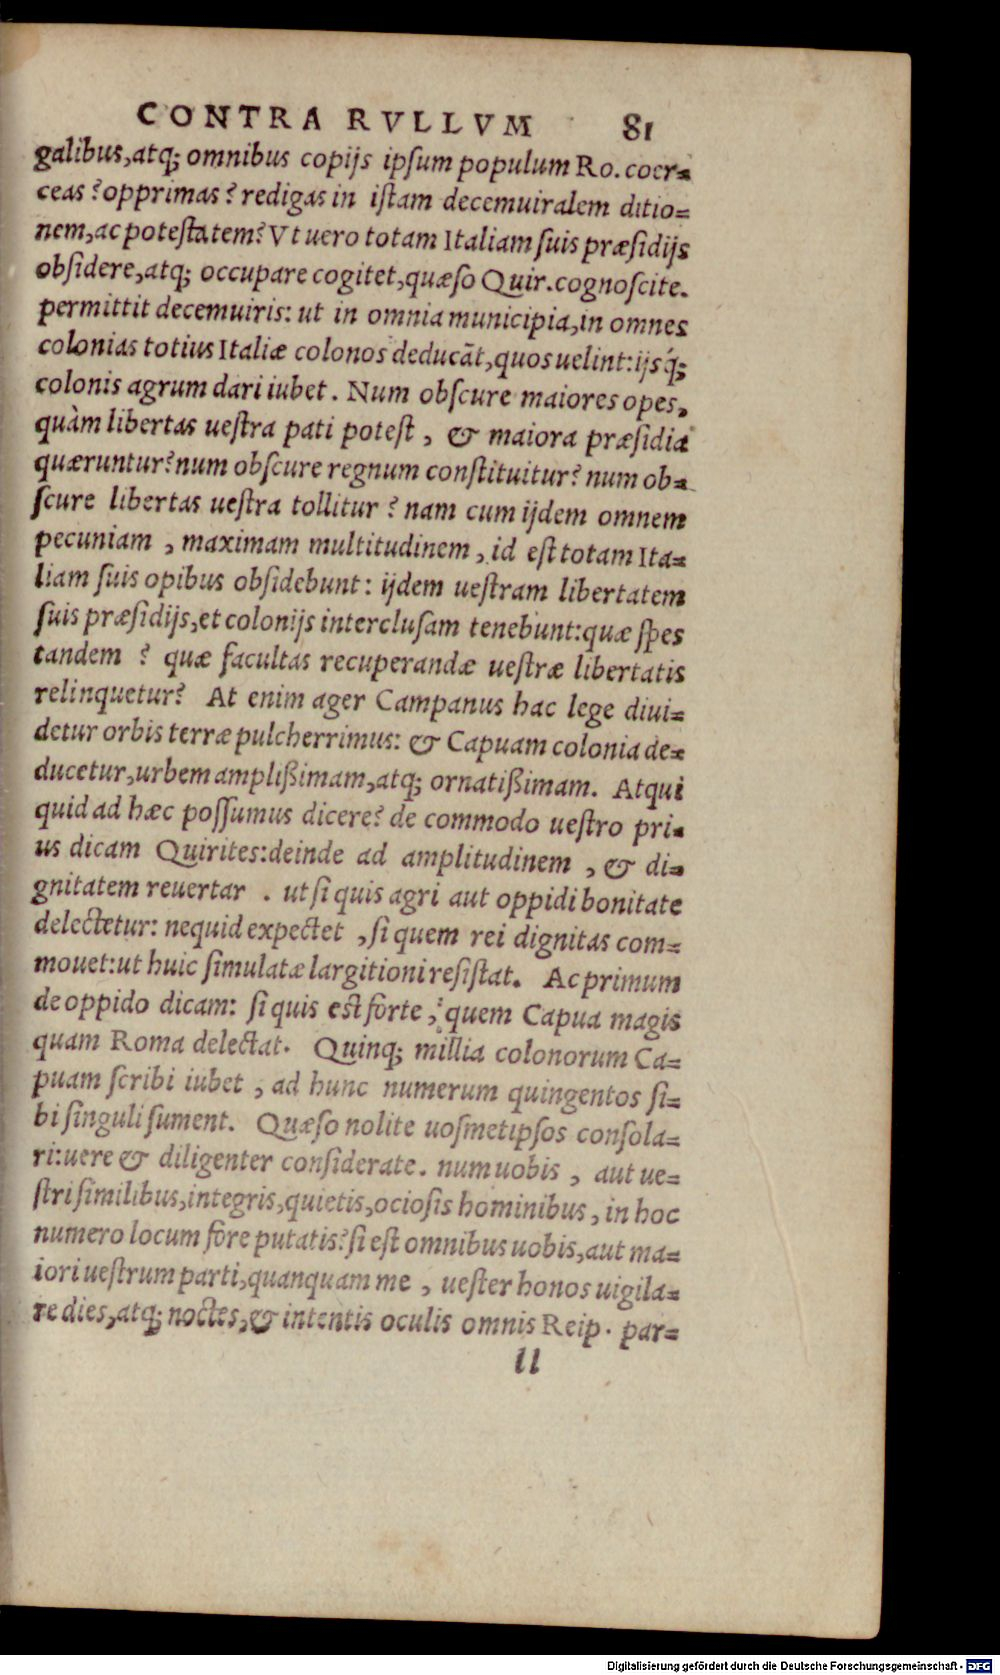 CONTRA RVLLVM 81
galibus, atq; omnibus copijs ipsum populum Ro. coer=
ceas? opprimas? redigas in istam decemuiralem ditio=
nem, ac potestatem? Vt uero totam Italiam suis præsidijs
obsidere, atq; occupare cogitet, quæso Quir. cognoscite.
permittit decemuiris: ut in omnia municipia, in omnes
colonias totius Italiæ colonos deducãt, quos uelint: ijsq́;
colonis agrum dari iubet. Num obscure maiores opes,
quàm libertas uestra pati potest, & maiora præsidia
quæruntur? num obscure regnum constituitur? num ob=
scure libertas uestra tollitur? nam cum ijdem omnem
pecuniam, maximam multitudinem, id est totam Ita=
liam suis opibus obsidebunt: ijdem uestram libertatem
suis præsidijs, et colonijs interclusam tenebunt: quæ spes
tandem? quæ facultas recuperandæ uestræ libertatis
relinquetur? At enim ager Campanus hac lege diui=
detur orbis terræ pulcherrimus: & Capuam colonia de=
ducetur, urbem amplißimam, atq; ornatißimam. Atqui
quid ad hæc possumus dicere? de commodo uestro pri=
us dicam Quirites: deinde ad amplitudinem, & di=
gnitatem reuertar. ut si quis agri aut oppidi bonitate
delectetur: nequid expectet, si quem rei dignitas com=
mouet: ut huic simulatæ largitioni resistat. Ac primum
de oppido dicam: si quis est forte, quem Capua magis
quam Roma delectat. Quinq; millia colonorum Ca=
puam scribi iubet, ad hunc numerum quingentos si=
bi singuli sument. Quæso nolite uosmetipsos consola=
ri: uere & diligenter considerate. num uobis, aut ue=
stri similibus, integris, quietis, ociosis hominibus, in hoc
numero locum fore putatis? si est omnibus uobis, aut ma=
iori uestrum parti, quanquam me, uester honos uigila=
re dies, atq; noctes, & intentis oculis omnis Reip. par=
ll
Digitalisierung gefördert durch die Deutsche Forschungsgemeinschaft - DFG